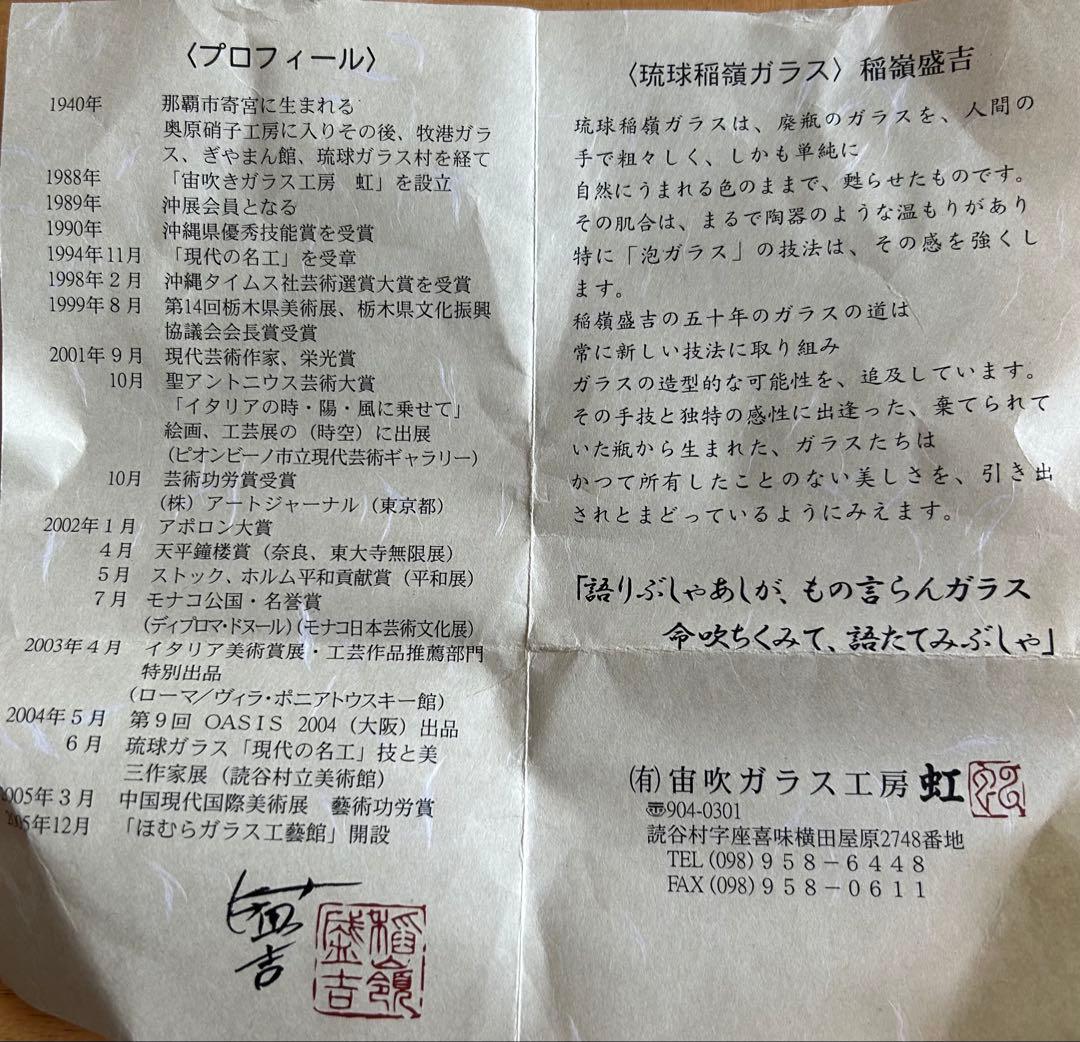 〈プロフィール〉
1940年 那覇市寄宮に生まれる
奥原硝子工房に入りその後、牧港ガラ
ス、ぎやまん館、琉球ガラス村を経て
1988年 「宙吹きガラス工房 虹」を設立
1989年 沖展会員となる
1990年 沖縄県優秀技能賞を受賞
1994年11月 「現代の名工」を受章
1998年2月 沖縄タイムス社芸術選賞大賞を受賞
1999年8月 第14回栃木県美術展、栃木県文化振興
協議会会長賞受賞
2001年9月 現代芸術作家、栄光賞
10月 聖アントニウス芸術大賞
「イタリアの時・陽・風に乗せて」
絵画、工芸展の(時空)に出展
(ピオンビーノ市立現代芸術ギャラリー)
10月 芸術功労賞受賞
(株)アートジャーナル(東京都)
2002年1月 アポロン大賞
4月 天平鐘楼賞(奈良、東大寺無限展)
5月 ストック、ホルム平和貢献賞(平和展)
7月 モナコ公国・名誉賞
(ディプロマ・ドヌール)(モナコ日本芸術文化展)
2003年4月 イタリア美術賞展・工芸作品推薦部門
特別出品
(ローマ/ヴィラ・ポニアトウスキー館)
2004年5月 第9回 OASIS 2004(大阪)出品
6月 琉球ガラス「現代の名工」技と美
三作家展(読谷村立美術館)
005年3月 中国現代国際美術展 藝術功労賞
2005年12月 「ほむらガラス工藝館」開設
盛吉
稲嶺盛吉
〈琉球稲嶺ガラス〉稲嶺盛吉
琉球稲嶺ガラスは、廃瓶のガラスを、人間の
手で粗々しく、しかも単純に
自然にうまれる色のままで、甦らせたものです。
その肌合は、まるで陶器のような温もりがあり
特に「泡ガラス」の技法は、その感を強くし
ます。
稲嶺盛吉の五十年のガラスの道は
常に新しい技法に取り組み
ガラスの造型的な可能性を、追及しています。
その手技と独特の感性に出逢った、棄てられて
いた瓶から生まれた、ガラスたちは
かつて所有したことのない美しさを、引き出
されとまどっているようにみえます。
「語りぶしゃあしが、もの言らんガラス
命吹ちくみて、語たてみぶしゃ」
(有)宙吹ガラス工房 虹
〠904-0301
読谷村字座喜味横田屋原2748番地
TEL(098)958−6448
FAX(098)958−0611